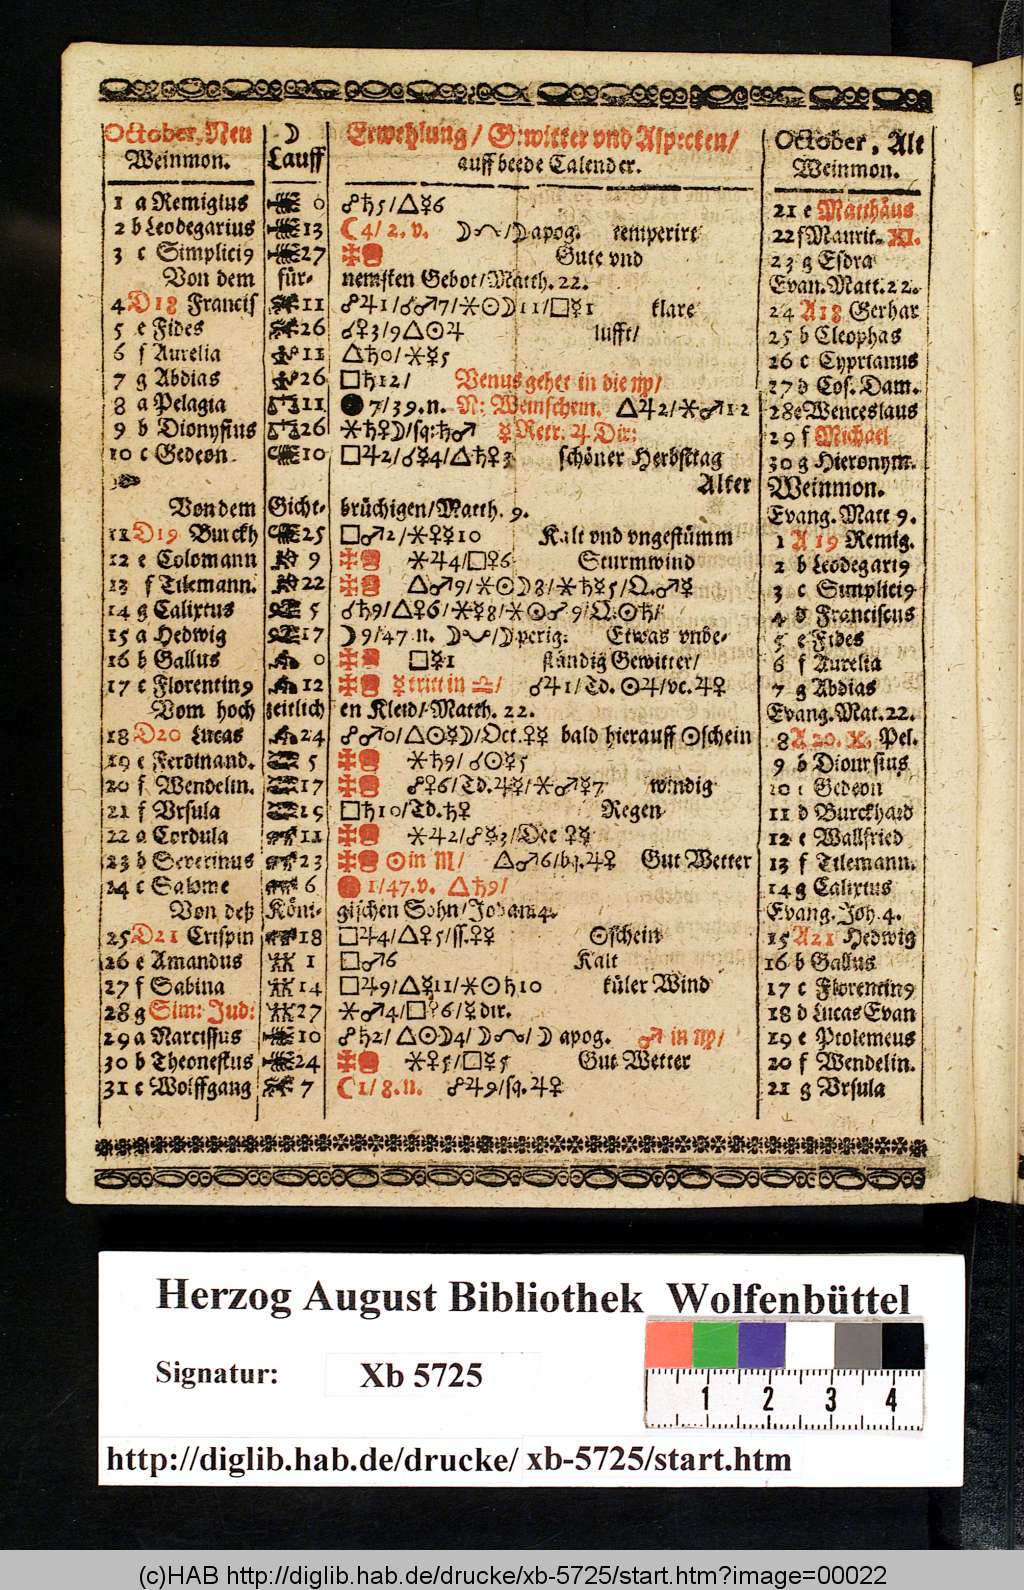 October, Neu ☽ Erwehlung/ Gewitter vnd Aspecten/ October, Alt
Weinmon. Lauff auff beede Calender. Weinmon.
1 a Remigius 0 ☍♄5/△☿6 21 e Matthäus
2 b Leodegarius 13 ☾4/2.v. ☽ apog. temperirt 22 f Maurit. XI.
3 c Simplici9 27 Gute vnd 23 g Esdra
Von dem für- nemsten Gebot/Matth. 22. Evan. Matt. 22.
4 D18 Francis 11 ☍♃1/☌♂7/⚹☉☽11/□☿1 klare 24 A18 Gerhar
5 e Fides 26 ☌♀3/9△☉♃ lufft/ 25 b Cleophas
6 f Aurelia 11 △♄0/⚹☿5 26 c Cyprianus
7 g Abdias 26 □♄12/ Venus gehet in die ♍/ 27 d Cos. Dam.
8 a Pelagia 11 ●7/39.n. N: Weinschein. △♃2/⚹♂12 28 e Wenceslaus
9 b Dionysius 26 ⚹♄♀☽/sq:♄♂ ☿ Retr. ♃ Dir: 29 f Michael
10 c Gedeon 10 □♃2/☌☿4/△♄♀3 schöner Herbsttag 30 g Hieronym.
Alter Weinmon.
Von dem Gicht- brüchigen/Matth. 9. Evang. Matt 9.
11 D19 Burckh 25 □♂2/⚹♀☿10 Kalt vnd vngestümm 1 A 19 Remig.
12 e Colomann 9 ⚹♃4/□♀6 Sturmwind 2 b Leodegari9
13 f Tilemann. 22 △♂9/⚹☉☽8/⚹♄☿5/Q.♂☿ 3 c Simplici9
14 g Calixtus 5 ☌♄9/△♀6/⚹☿8/⚹☉♂9/Q:☉♄/ 4 d Franciscus
15 a Hedwig 17 ☽9/47.n. ☽/☽perig: Etwas vnbe- 5 e Fides
16 b Gallus 0 □☿1 ständig Gewitter/ 6 f Aurelia
17 c Florentin9 12 ☿ tritt in ♎/ ☌♃1/Td.☉♃/vc.♃♀ 7 g Abdias
Vom hoch zeitlich en Kleid/Matth. 22. Evang. Mat. 22.
18 D20 Lucas 24 ☍♂0/△☉☿☽/Oct.♀☿ bald hierauff ☉schein 8 A 20. X. Pel.
19 e Ferdinand. 5 ⚹♄9/☌☉☿5 9 b Dionysius
20 f Wendelin. 17 ☍♀6/Td.♃☿/⚹♂☿7 windig 10 c Gedeon
21 f Vrsula □♄10/Td.♄♀ Regen 11 d Burckhard
22 a Cordula 11 ⚹♃2/☍☿3/Dec ♀☿ 12 e Wallfried
23 b Severinus 23 ☉in ♏/ △♂6/bq.♃♀ Gut Wetter 13 f Tilemann.
24 c Salome 6 1/47.v. △♄9/ 14 g Calixtus
Von deß Köni- gischen Sohn/Johan 4. Evang. Joh. 4.
25 D21 Crispin 18 □♃4/△♀5/ss.♀☿ ☉schein 15 A21 Hedwig
26 e Amandus 1 □♂6 Kalt 16 b Gallus
27 f Sabina 14 □♃9/△☿11/⚹☉♄10 küler Wind 17 c Florentin9
28 g Sim: Jud: 27 ⚹♂4/□♀6/☿dir. 18 d Lucas Evan
29 a Narcissus 10 ☍♄2/△☉☽4/☽/☽ apog. ♂ in ♍/ 19 e Ptolemeus
30 b Theonestus 24 ⚹♀5/□☿5 Gut Wetter 20 f Wendelin.
31 c Wolffgang 7 ☾1/8.n. ☍♃9/sq.♃♀ 21 g Vrsula
Herzog August Bibliothek Wolfenbüttel
Signatur: Xb 5725
1 2 3 4
http://diglib.hab.de/drucke/ xb-5725/start.htm
(c)HAB http://diglib.hab.de/drucke/xb-5725/start.htm?image=00022